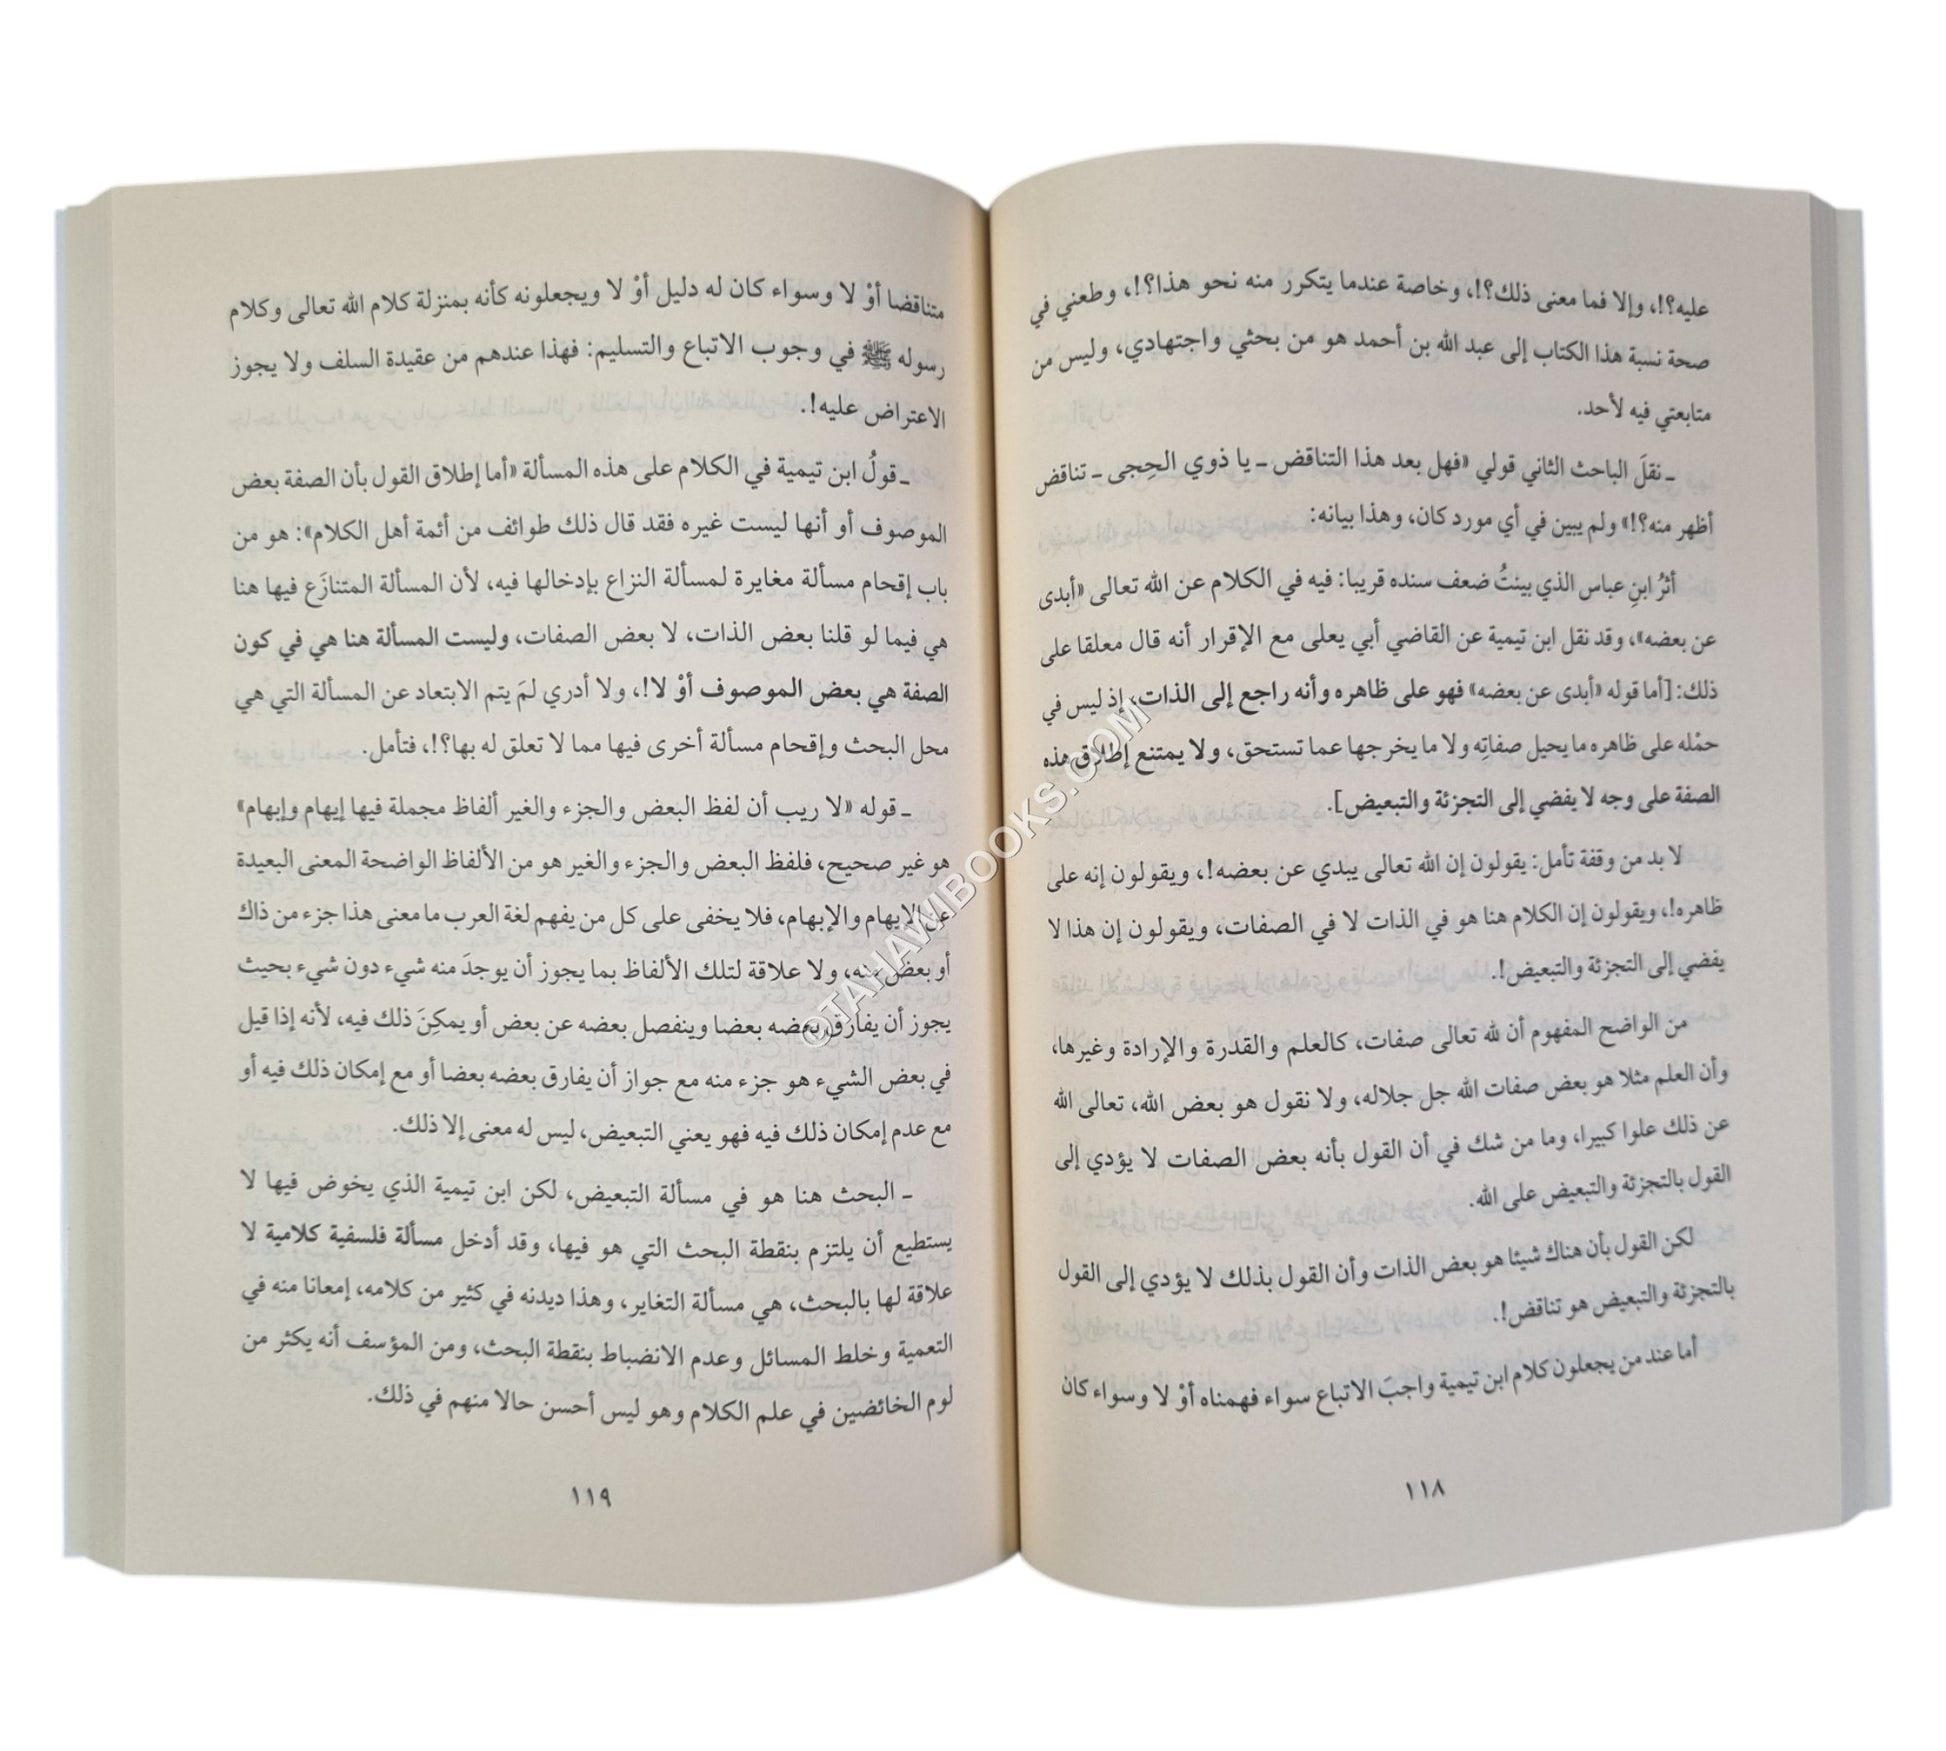 عليه؟!، وإلا فما معنى ذلك؟!، وخاصة عندما يتكرر منه نحو هذا؟!، وطعني في
صحة نسبة هذا الكتاب إلى عبد الله بن أحمد هو من بحثي واجتهادي، وليس من
متابعتي فيه لأحد.
ـ نقلَ الباحث الثاني قولي «فهل بعد هذا التناقض ـ يا ذوي الحِجى ـ تناقض
أظهر منه؟!» ولم يبين في أي مورد كان، وهذا بيانه:
أثرُ ابنِ عباس الذي بينتُ ضعف سنده قريبا: فيه في الكلام عن الله تعالى «أبدى
عن بعضه»، وقد نقل ابن تيمية عن القاضي أبي يعلى مع الإقرار أنه قال معلقا على
ذلك: [أما قوله «أبدى عن بعضه» فهو على ظاهره وأنه راجع إلى الذات، إذ ليس في
حمْله على ظاهره ما يحيل صفاتِه ولا ما يخرجها عما تستحق، ولا يمتنع إطلاق هذه
الصفة على وجه لا يفضي إلى التجزئة والتبعيض].
لا بد من وقفة تأمل: يقولون إن الله تعالى يبدي عن بعضه!، ويقولون إنه على
ظاهره!، ويقولون إن الكلام هنا هو في الذات لا في الصفات، ويقولون إن هذا لا
يفضي إلى التجزئة والتبعيض!.
من الواضح المفهوم أن لله تعالى صفات، كالعلم والقدرة والإرادة وغيرها،
وأن العلم مثلا هو بعض صفات الله جل جلاله، ولا نقول هو بعض الله، تعالى الله
عن ذلك علوا كبيرا، وما من شك في أن القول بأنه بعض الصفات لا يؤدي إلى
القول بالتجزئة والتبعيض على الله.
لكن القول بأن هناك شيئا هو بعض الذات وأن القول بذلك لا يؤدي إلى القول
بالتجزئة والتبعيض هو تناقض!.
أما عند من يجعلون كلام ابن تيمية واجبَ الاتباع سواء فهمناه أوْ لا وسواء كان
١١٨
متناقضا أوْ لا وسواء كان له دليل أوْ لا ويجعلونه كأنه بمنزلة كلام الله تعالى وكلام
رسوله ﷺ في وجوب الاتباع والتسليم: فهذا عندهم من عقيدة السلف ولا يجوز
الاعتراض عليه!.
ـ قولُ ابن تيمية في الكلام على هذه المسألة «أما إطلاق القول بأن الصفة بعض
الموصوف أو أنها ليست غيره فقد قال ذلك طوائف من أئمة أهل الكلام»: هو من
باب إقحام مسألة مغايرة لمسألة النزاع بإدخالها فيه، لأن المسألة المتنازَع فيها هنا
هي فيما لو قلنا بعض الذات، لا بعض الصفات، وليست المسألة هنا هي في كون
الصفة هي بعض الموصوف أوْ لا!، ولا أدري لمَ يتم الابتعاد عن المسألة التي هي
محل البحث وإقحام مسألة أخرى فيها مما لا تعلق له بها؟!، فتأمل.
ـ قوله «لا ريب أن لفظ البعض والجزء والغير ألفاظ مجملة فيها إيهام وإبهام»
هو غير صحيح، فلفظ البعض والجزء والغير هو من الألفاظ الواضحة المعنى البعيدة
عن الإيهام والإبهام، فلا يخفى على كل من يفهم لغة العرب ما معنى هذا جزء من ذاك
أو بعض منه، ولا علاقة لتلك الألفاظ بما يجوز أن يوجدَ منه شيء دون شيء بحيث
يجوز أن يفارق بعضه بعضا وينفصل بعضه عن بعض أو يمكِنَ ذلك فيه، لأنه إذا قيل
في بعض الشيء هو جزء منه مع جواز أن يفارق بعضه بعضا أو مع إمكان ذلك فيه أو
مع عدم إمكان ذلك فيه فهو يعني التبعيض، ليس له معنى إلا ذلك.
ـ البحث هنا هو في مسألة التبعيض، لكن ابن تيمية الذي يخوض فيها لا
يستطيع أن يلتزم بنقطة البحث التي هو فيها، وقد أدخل مسألة فلسفية كلامية لا
علاقة لها بالبحث، هي مسألة التغاير، وهذا ديدنه في كثير من كلامه، إمعانا منه في
التعمية وخلط المسائل وعدم الانضباط بنقطة البحث، ومن المؤسف أنه يكثر من
لوم الخائضين في علم الكلام وهو ليس أحسن حالا منهم في ذلك.
١١٩
©TAHAWIBOOKS.COM